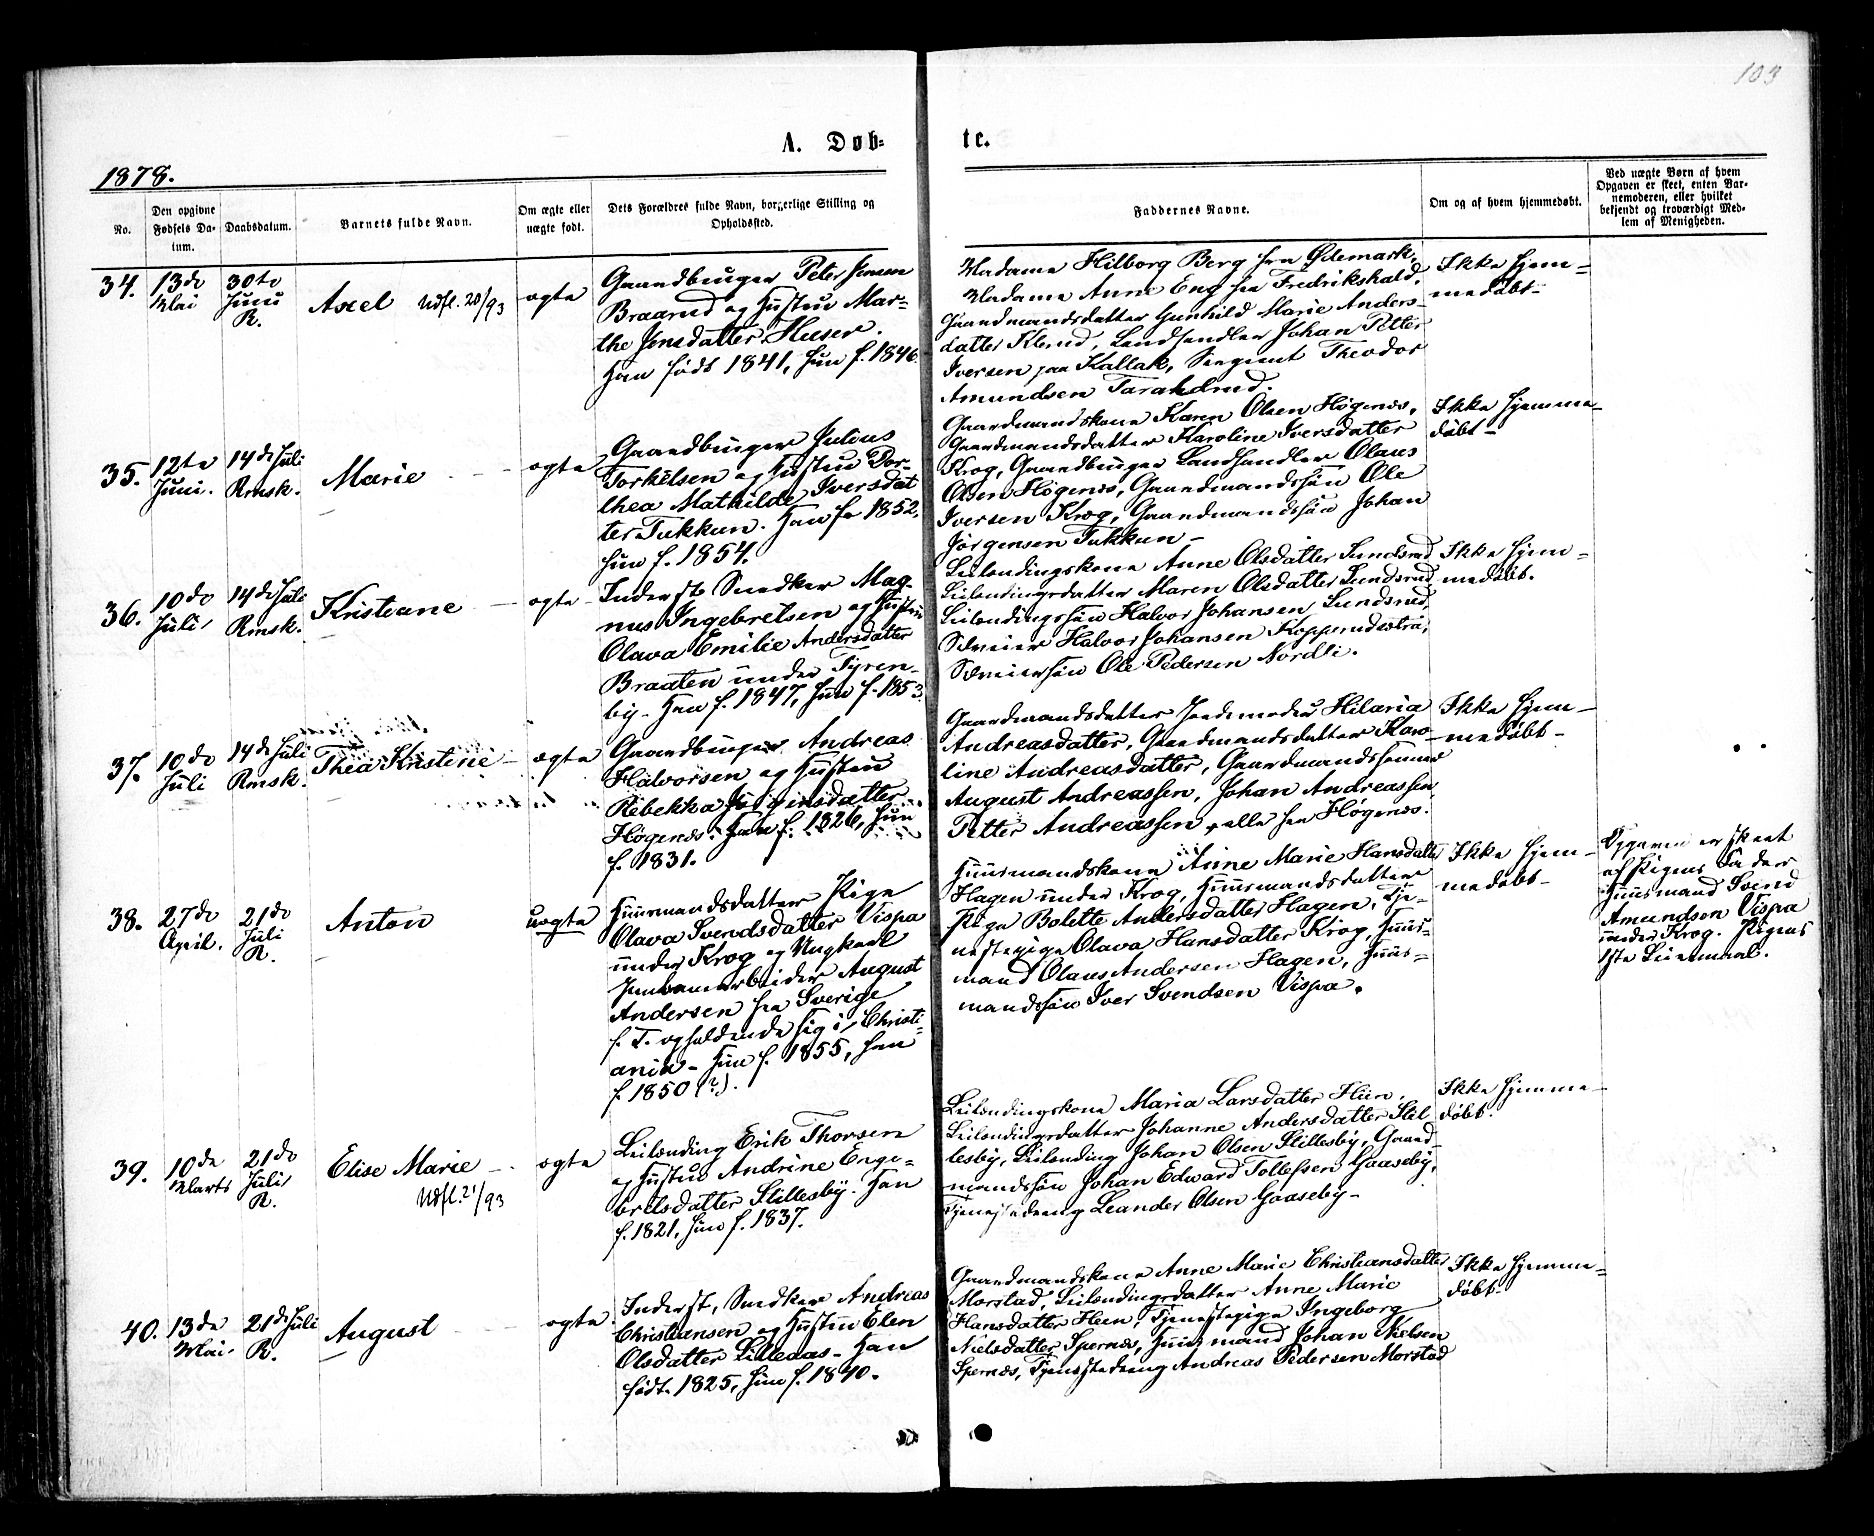 103
A. Døb-
te.
1878.
No.
Den opgivne Fødsels Da-
tum.
Daabsdatum.
Barnets fulde Navn.
Om ægte eller uægte født.
Dets Forældres fulde Navn, borgerlige Stilling og
Opholdssted.
Faddernes Navne.
Om og af hvem hjemmedøbt.
Ved uægte Børn af hvem
Opgaven er skeet, enten Bar-
nemoderen, eller hvilket
bekjendt og troværdigt Med-
lem af Menigheden.
34.
13de
Mai
30te
Juni
R.
Axel Udfl. 20/93
ægte
Gaardbruger Peter Jensen
Braarud og Hustru Mar-
the Jensdatter Huser.
Han født 1841, hun f. 1846.
Madame Hilborg Berg fra Ødemark,
Madame Anne Eng fra Fredrikshald,
Gaardmandsdatter Gunhild Marie Anders-
datter Klund, Landhandler Johan Petter
Iversen paa Kallak, Sergeant Theodor
Amundsen Taraldrud.
Ikke hjem-
medøbt-
35.
12te
Juni.
14de Juli
Rmsk.
Marie
ægte
Gaardbruger Julius
Torkelsen og Hustru Dor-
thea Mathilde Iversdat
ter Tukkun. Han f. 1852,
hun f. 1854.
Gaardmandskone Karen Olsen Høgenæs,
Gaardmandsdatter Karoline Iversdatter
Krog, Gaardbruger Landhandler Olaus
Olsen Høgenæs, Gaardmandssøn Ole
Iversen Krog, Gaardmandssøn Johan
Jørgensen Tukkun-
Ikke hjemme-
døbt-
36.
10de
Juli
14de Juli
Rmsk.
Kristiane
ægte
Inderst Snedker Mag-
nus Ingebretsen og Hustru
Olava Emilie Andersdatter
Braaten under Tyren-
by- Han f. 1847, hun f. 1853.
Leilændingskone Anne Olsdatter Sundsrud
Leilændingsdatter Maren Olsdatter Sundsrud
Leilændingssøn Halvor Johansen Sundsrud,
Sæveier Halvor Johansen Kopperudæstra,
Sæveiersøn Ole Pedersen Nordli.
Ikke hjem-
medøbt.
37.
10de
Juli
14de Juli
Rmsk.
Thea Kristine
ægte
Gaardbruger Andreas
Halvorsen og Hustru
Rebekka Jørgensdatter
Høgenæs. Han f. 1826, hun
f. 1831.
Gaardmandsdatter Jordemoder Hilaria
Andreasdatter, Gaardmandsdatter Karo-
line Andreasdatter, Gaardmandssønner
August Andreassen, Johan Andreassen,
Petter Andreassen, alle fra Høgenæs.
Ikke hjem-
medøbt-
38.
27de
April.
21de
Juli
R.
Anton
uægte
Huusmandsdatter Pige
Olava Svendsdatter Vispa
under Krog og Ungkarl
Jernbanearbeider August
Andersen fra Sverige
f. T. opholdende sig i Christi-
ania- Hun f. 1855, han
f. 1850 (?).
Huusmandskone Anne Marie Hansdatter
Hagen under Krog, Huusmandsdatter
Pige Bolette Andersdatter Hagen, Tje-
nestepige Olava Hansdatter Krog, Huus-
mand Olaus Andersen Hagen, Huus-
mandssøn Iver Svendsen Vispa.
Ikke hjem-
medøbt-
Opgaven er skeet
af Pigens Fader
Huusmand Svend
Amundsen Vispa
under Krog. Pigens
1ste Leiermaal.
39.
10de
Marts
21de
Juli
R.
Elise Marie
Udfl. 21/93
ægte
Leilænding Erik Thorsen
og Hustru Andrine Enge-
bretsdatter Stillesby. Han
f. 1821, hun f. 1837.
Leilændingskone Maria Larsdatter Hien,
Leilændingsdatter Johanne Andersdatter Stil
lesby, Leilænding Johan Olsen Stillesby, Gaard-
mandssøn Johan Edward Tollefsen Gaaseby,
Tjenestedreng Leander Olsen Gaaseby-
Ikke hjemme-
døbt.
40.
13de
Mai.
21de Juli
R.
August
ægte
Inderst, Snedker Andreas
Christiansen og Hustru Elen
Olsdatter Lilleaas- Han
født 1825, hun f. 1840.
Gaardmandskone Anne Marie Christiansdatter
Morstad, Leilændingsdatter Anne Marie
Hansdatter Heen, Tjenestepige Ingeborg
Nielsdatter Spernæs, Huusmand Johan Nielsen
Spernæs, Tjenestedreng Andreas Pedersen Morstad
Ikke hjemme-
døbt.